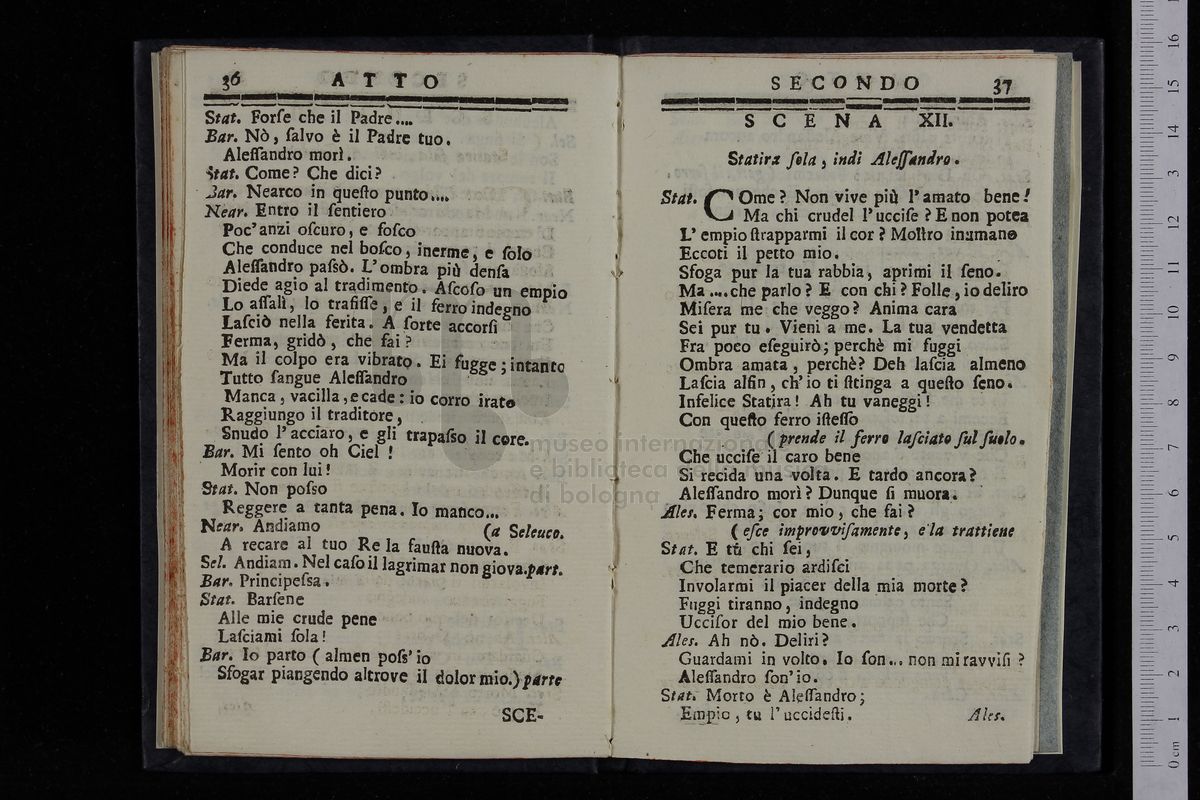 36 ATTO
Stat. Forſe che il Padre....
Bar. Nò, ſalvo è il Padre tuo.
Aleſſandro morì.
Stat. Come? Che dici?
Bar. Nearco in queſto punto....
Near. Entro il ſentiero
Poc'anzi oſcuro, e foſco
Che conduce nel boſco, inerme, e ſolo
Aleſſandro paſsò. L'ombra più denſa
Diede agio al tradimento. Aſcoſo un empio
Lo aſſalì, lo trafiſſe, e il ferro indegno
Laſciò nella ferita. A ſorte accorſi
Ferma, gridò, che fai?
Ma il colpo era vibrato. Ei fugge; intanto
Tutto ſangue Aleſſandro
Manca, vacilla, e cade: io corro irato
Raggiungo il traditore,
Snudo l'acciaro, e gli trapaſso il core.
Bar. Mi ſento oh Ciel!
Morir con lui!
Stat. Non poſso
Reggere a tanta pena. Io manco...
Near. Andiamo (a Seleuco.
A recare al tuo Re la fauſta nuova.
Sel. Andiam. Nel caſo il lagrimar non giova. part.
Bar. Principeſsa.
Stat. Barſene
Alle mie crude pene
Laſciami ſola!
Bar. Io parto (almen poſs'io
Sfogar piangendo altrove il dolor mio.) parte
SCE-
SECONDO 37
SCENA XII.
Statira ſola, indi Aleſſandro.
Stat. COme? Non vive più l'amato bene!
Ma chi crudel l'ucciſe? E non potea
L'empio ſtrapparmi il cor? Moſtro inumano
Eccoti il petto mio.
Sfoga pur la tua rabbia, aprimi il ſeno.
Ma.... che parlo? E con chi? Folle, io deliro
Miſera me che veggo? Anima cara
Sei pur tu. Vieni a me. La tua vendetta
Fra poco eſeguirò; perchè mi fuggi
Ombra amata, perchè? Deh laſcia almeno
Laſcia alfin, ch'io ti ſtinga a queſto ſeno.
Infelice Statira! Ah tu vaneggi!
Con queſto ferro iſteſſo
(prende il ferro laſciato ſul ſuolo.
Che ucciſe il caro bene
Si recida una volta. E tardo ancora?
Aleſſandro morì? Dunque ſi muora.
Ales. Ferma; cor mio, che fai?
(eſce improvviſamente, e la trattiene
Stat. E tù chi ſei,
Che temerario ardiſci
Involarmi il piacer della mia morte?
Fuggi tiranno, indegno
Ucciſor del mio bene.
Ales. Ah nò. Deliri?
Guardami in volto. Io ſon... non mi ravviſi?
Aleſſandro ſon'io.
Stat. Morto è Aleſſandro;
Empio, tu l'uccideſti.
Ales.
museo internazionale
e biblioteca della musica
di bologna
0 cm 1 2 3 4 5 6 7 8 9 10 11 12 13 14 15 16